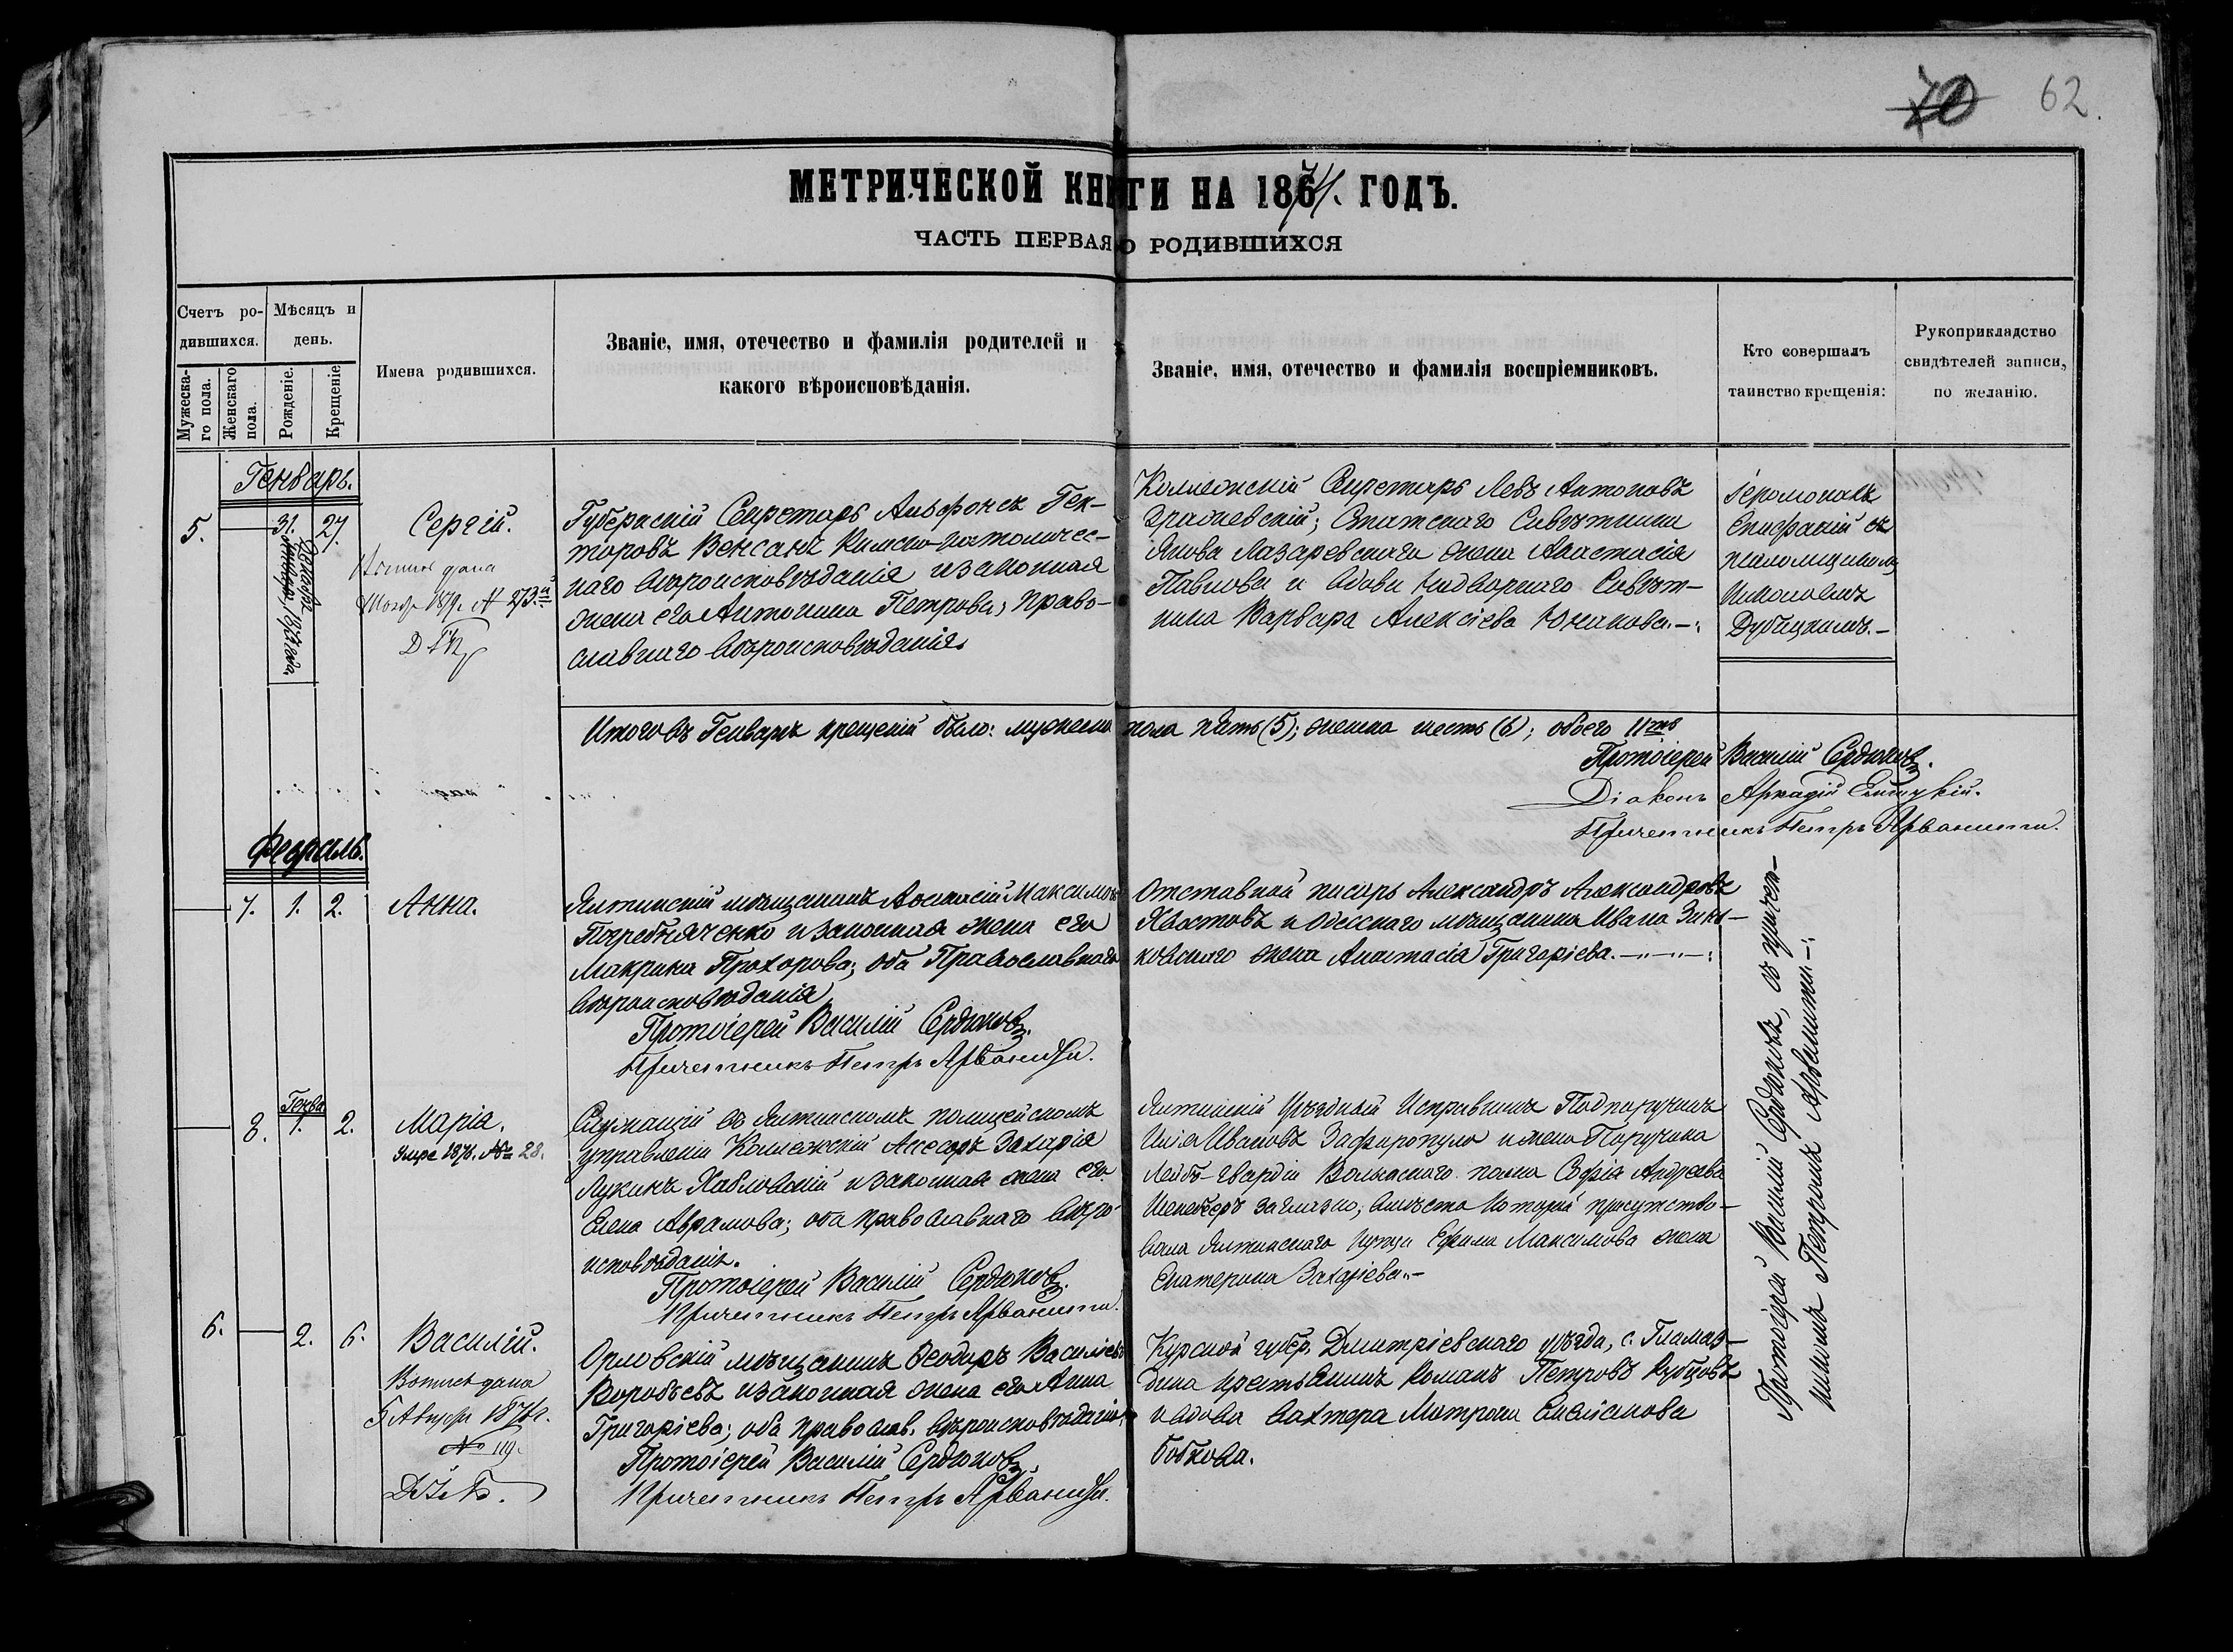 70 62.
МЕТРИЧЕСКОЙ КНИГИ НА 1871. ГОДЪ.
ЧАСТЬ ПЕРВАЯ О РОДИВШИХСЯ
Счетъ ро-
дившихся.
Мужеска-
го пола.
Женскаго
пола.
Мѣсяцъ и
день.
Рожденіе.
Крещеніе.
Имена родившихся.
Званіе, имя, отечество и фамилія родителей и
какого вѣроисповѣданія.
Званіе, имя, отечество и фамилія воспріемниковъ.
Кто совершалъ
таинство крещенія:
Рукоприкладство
свидѣтелей записи,
по желанію.
Генварь.
5. 31. 27.
Декабря
Сергій.
дана
1879 г. № 273.
Губернскій Секретарь Альфонсъ Гек-
торовъ Венсанъ Римско-католичес-
каго вѣроисповѣданія и законная
жена его Антонина Петрова, право-
славнаго вѣроисповѣданія
Коллежскій Секретарь Левъ Антоновъ
Статскаго Совѣтника
Якова Лазаревскаго жена Анастасія
Павлова и вдова Надворнаго Совѣт-
ника Варвара Алексіева Юнакова.
Іеромонахъ
Епифаній съ
псаломщикомъ
Николаемъ
Дубицкимъ.
Итого въ Генварѣ крещеній было: мужеска пола пять (5); женска шесть (6); обоего 11ть
Протоіерей Василій Сердюковъ.
Діаконъ Аркадій
Причетникъ Петръ Арванити.
Февраль.
7. 1. 2. Анна.
Ялтинскій мѣщанинъ Максимовъ
Погребняченко и законная жена его
Макрина Прохорова; оба Православнаго
вѣроисповѣданія
Протоіерей Василій Сердюковъ.
Причетникъ Петръ Арванити.
Отставной писарь Александръ Александровъ
Хвостовъ и Одесскаго мѣщанина Ивана Зинь-
ковскаго жена Анастасія Григоріева.
Генва
8. 1. 2. Марія.
Умре 1876. № 28.
Служащій въ Ялтинскомъ полицейскомъ
управленіи Коллежскій Ассесоръ Захарія
Лукинъ Хабловскій и законная жена его
Елена Аврамова; оба православнаго вѣро-
исповѣданія.
Протоіерей Василій Сердюковъ.
Причетникъ Петръ Арванити.
Ялтинскій Уѣздный Исправникъ Подпоручикъ
Илія Ивановъ Зафиропуло и жена Поручика
Лейбъ-гвардіи Волынскаго полка Софія Андреева
заглазно, вмѣсто которой присутство-
вала Ялтинскаго купца Ефима Максимова жена
Екатерина Захаріева.
6. 2. 6. Василій.
Вопись дана
5 1876 г.
№ 119.
Орловскій мѣщанинъ Ѳеодоръ Василіевъ
Воробьевъ и законная жена его Анна
Григоріева; оба православ. вѣроисповѣданія
Протоіерей Василій Сердюковъ
Причетникъ Петръ Арванити.
Курской губер. Дмитріевскаго уѣзда, с. Гламаз-
дина крестьянинъ Романъ Петровъ Рубцовъ
и вдова вахтера Матрона
Бобкова.
Протоіерей Василій Сердюковъ, съ причет-
никомъ Петромъ Арванити.